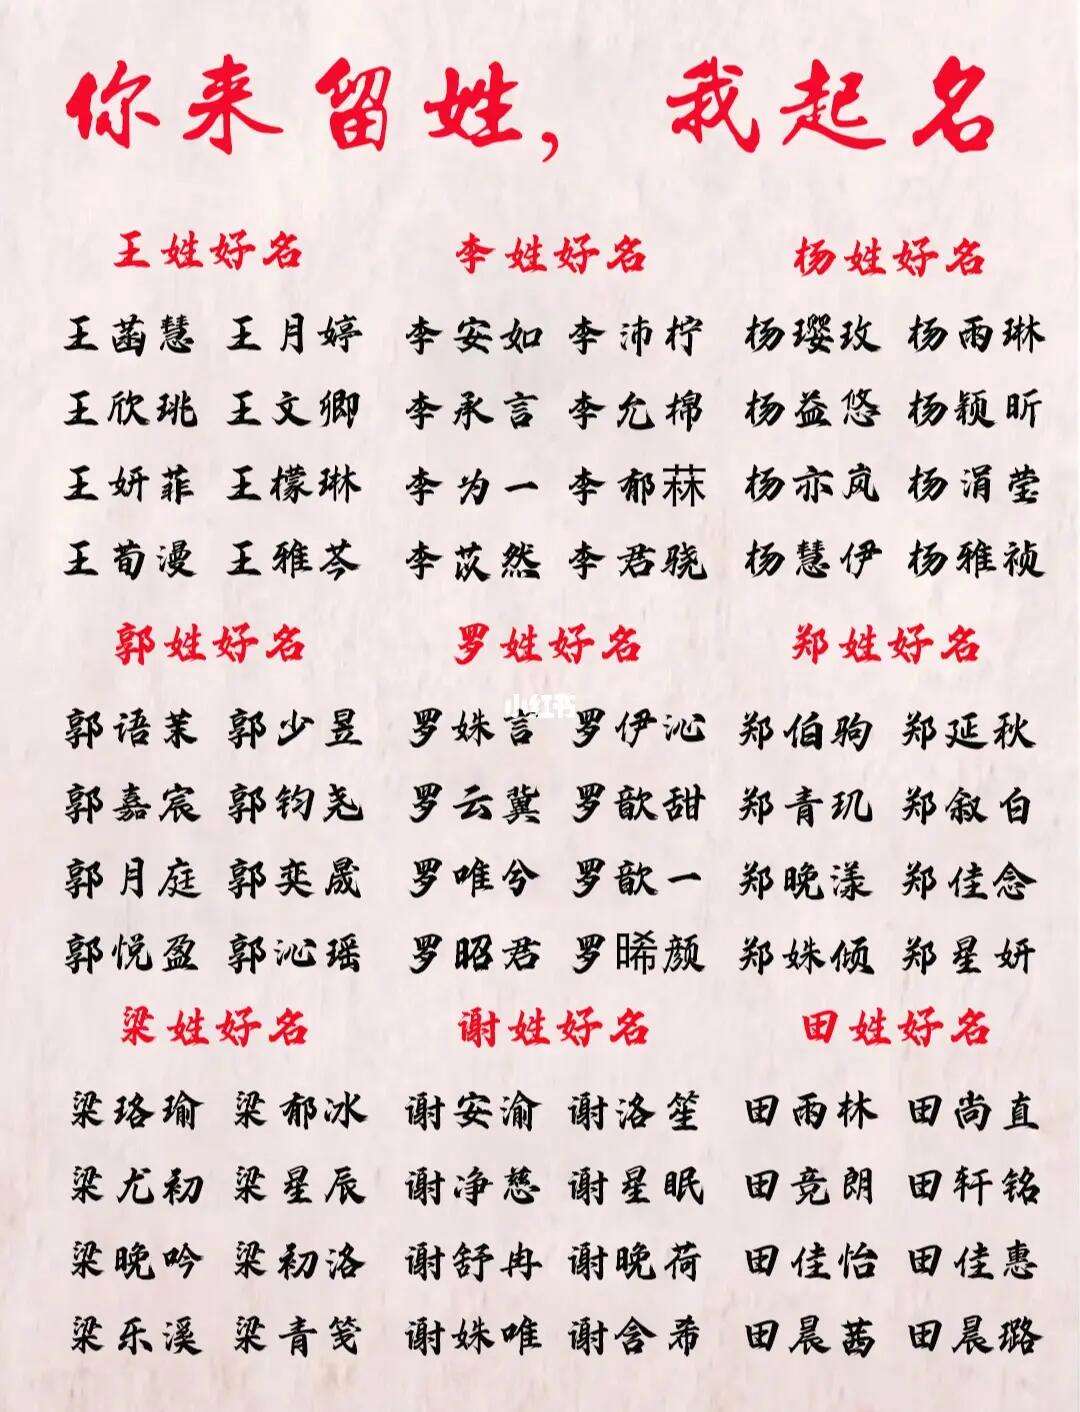 你来留姓，我起名
王姓好名
王菡慧 王月婷
王欣珧 王文卿
王妍菲 王檬琳
王荀漫 王雅芩
李姓好名
李安如 李沛柠
李承言 李允棉
李为一 李郁菻
李苡然 李君骁
杨姓好名
杨璎玫 杨雨琳
杨益悠 杨颖昕
杨亦岚 杨涓莹
杨慧伊 杨雅祯
郭姓好名
郭语茉 郭少昱
郭嘉宸 郭钧尧
郭月庭 郭奕晟
郭悦盈 郭沁瑶
罗姓好名
小红书
罗姝言 罗伊沁
罗云冀 罗歆甜
罗唯兮 罗歆一
罗昭君 罗晞颜
郑姓好名
郑伯驹 郑延秋
郑青玑 郑叙白
郑晚漾 郑佳念
郑姝倾 郑星妍
梁姓好名
梁珞瑜 梁郁冰
梁尤初 梁星辰
梁晚吟 梁初洛
梁乐溪 梁青笺
谢姓好名
谢安渝 谢洛笙
谢净慈 谢星眠
谢舒冉 谢晚荷
谢姝唯 谢含希
田姓好名
田雨林 田尚直
田竞朗 田轩铭
田佳怡 田佳惠
田晨茜 田晨璐